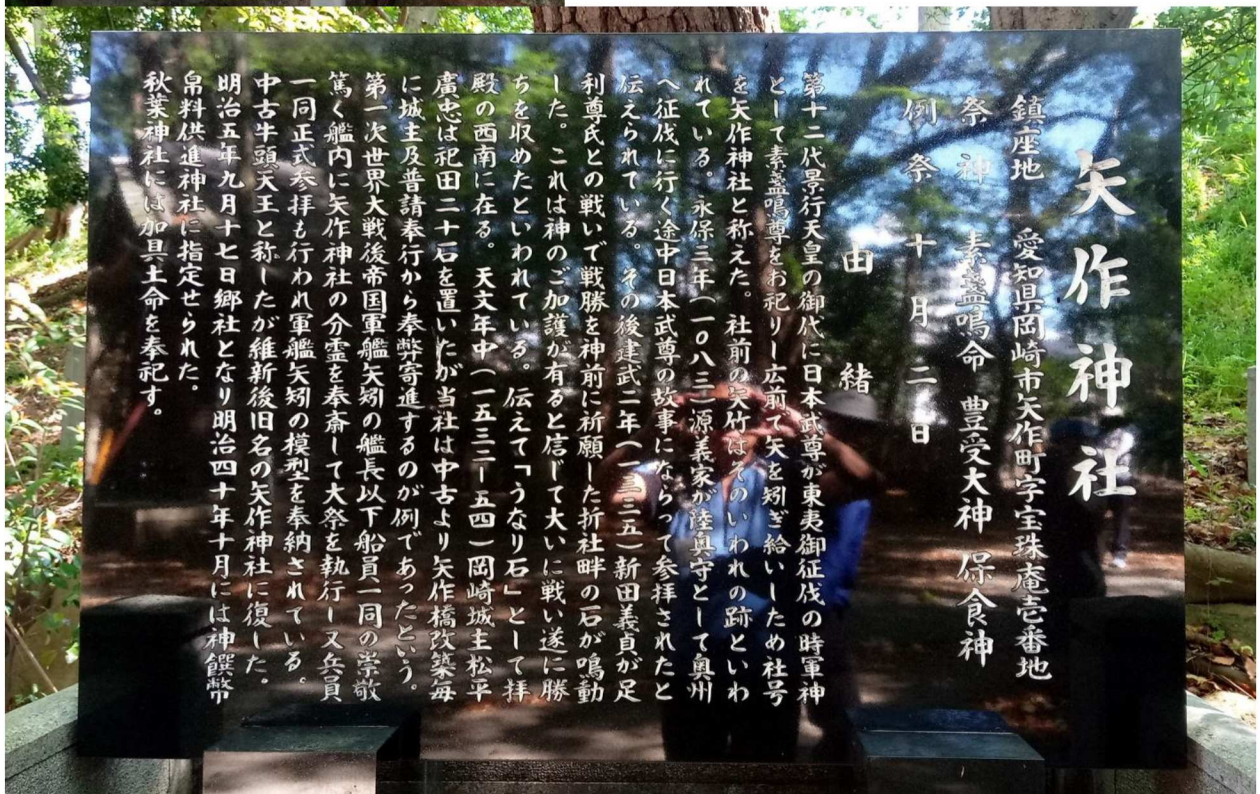 矢作神社
鎮座地 愛知県岡崎市矢作町字宝珠庵壱番地
祭神 素盞鳴命 豊受大神 保食神
例祭 十月二日
由緒
第十二代景行天皇の御代に日本武尊が東夷御征伐の時軍神
として素盞鳴尊をお祀りし広前で矢を矧ぎ給いしため社号
を矢作神社と称えた。社前の矢竹はそのいわれの跡といわ
れている。永保三年(一〇八三)源義家が陸奥守として奥州
へ征伐に行く途中日本武尊の故事にならって参拝されたと
伝えられている。その後建武二年(一三三五)新田義貞が足
利尊氏との戦いで戦勝を神前に祈願した折社畔の石が鳴動
した。これは神のご加護が有ると信じて大いに戦い遂に勝
ちを収めたといわれている。伝えて「うなり石」として拝
殿の西南に在る。天文年中(一五三二ー五四)岡崎城主松平
廣忠は祀田二十石を置いたが当社は中古より矢作橋改築毎
に城主及普請奉行から奉弊寄進するのが例であったという。
第一次世界大戦後帝国軍艦矢矧の艦長以下船員一同の崇敬
篤く艦内に矢作神社の分霊を奉斎して大祭を執行し又兵員
一同正式参拝も行われ軍艦矢矧の模型を奉納されている。
中古牛頭天王と称したが維新後旧名の矢作神社に復した。
明治五年九月十七日郷社となり明治四十年十月には神饌幣
帛料供進神社に指定せられた。
秋葉神社には加具土命を奉祀す。